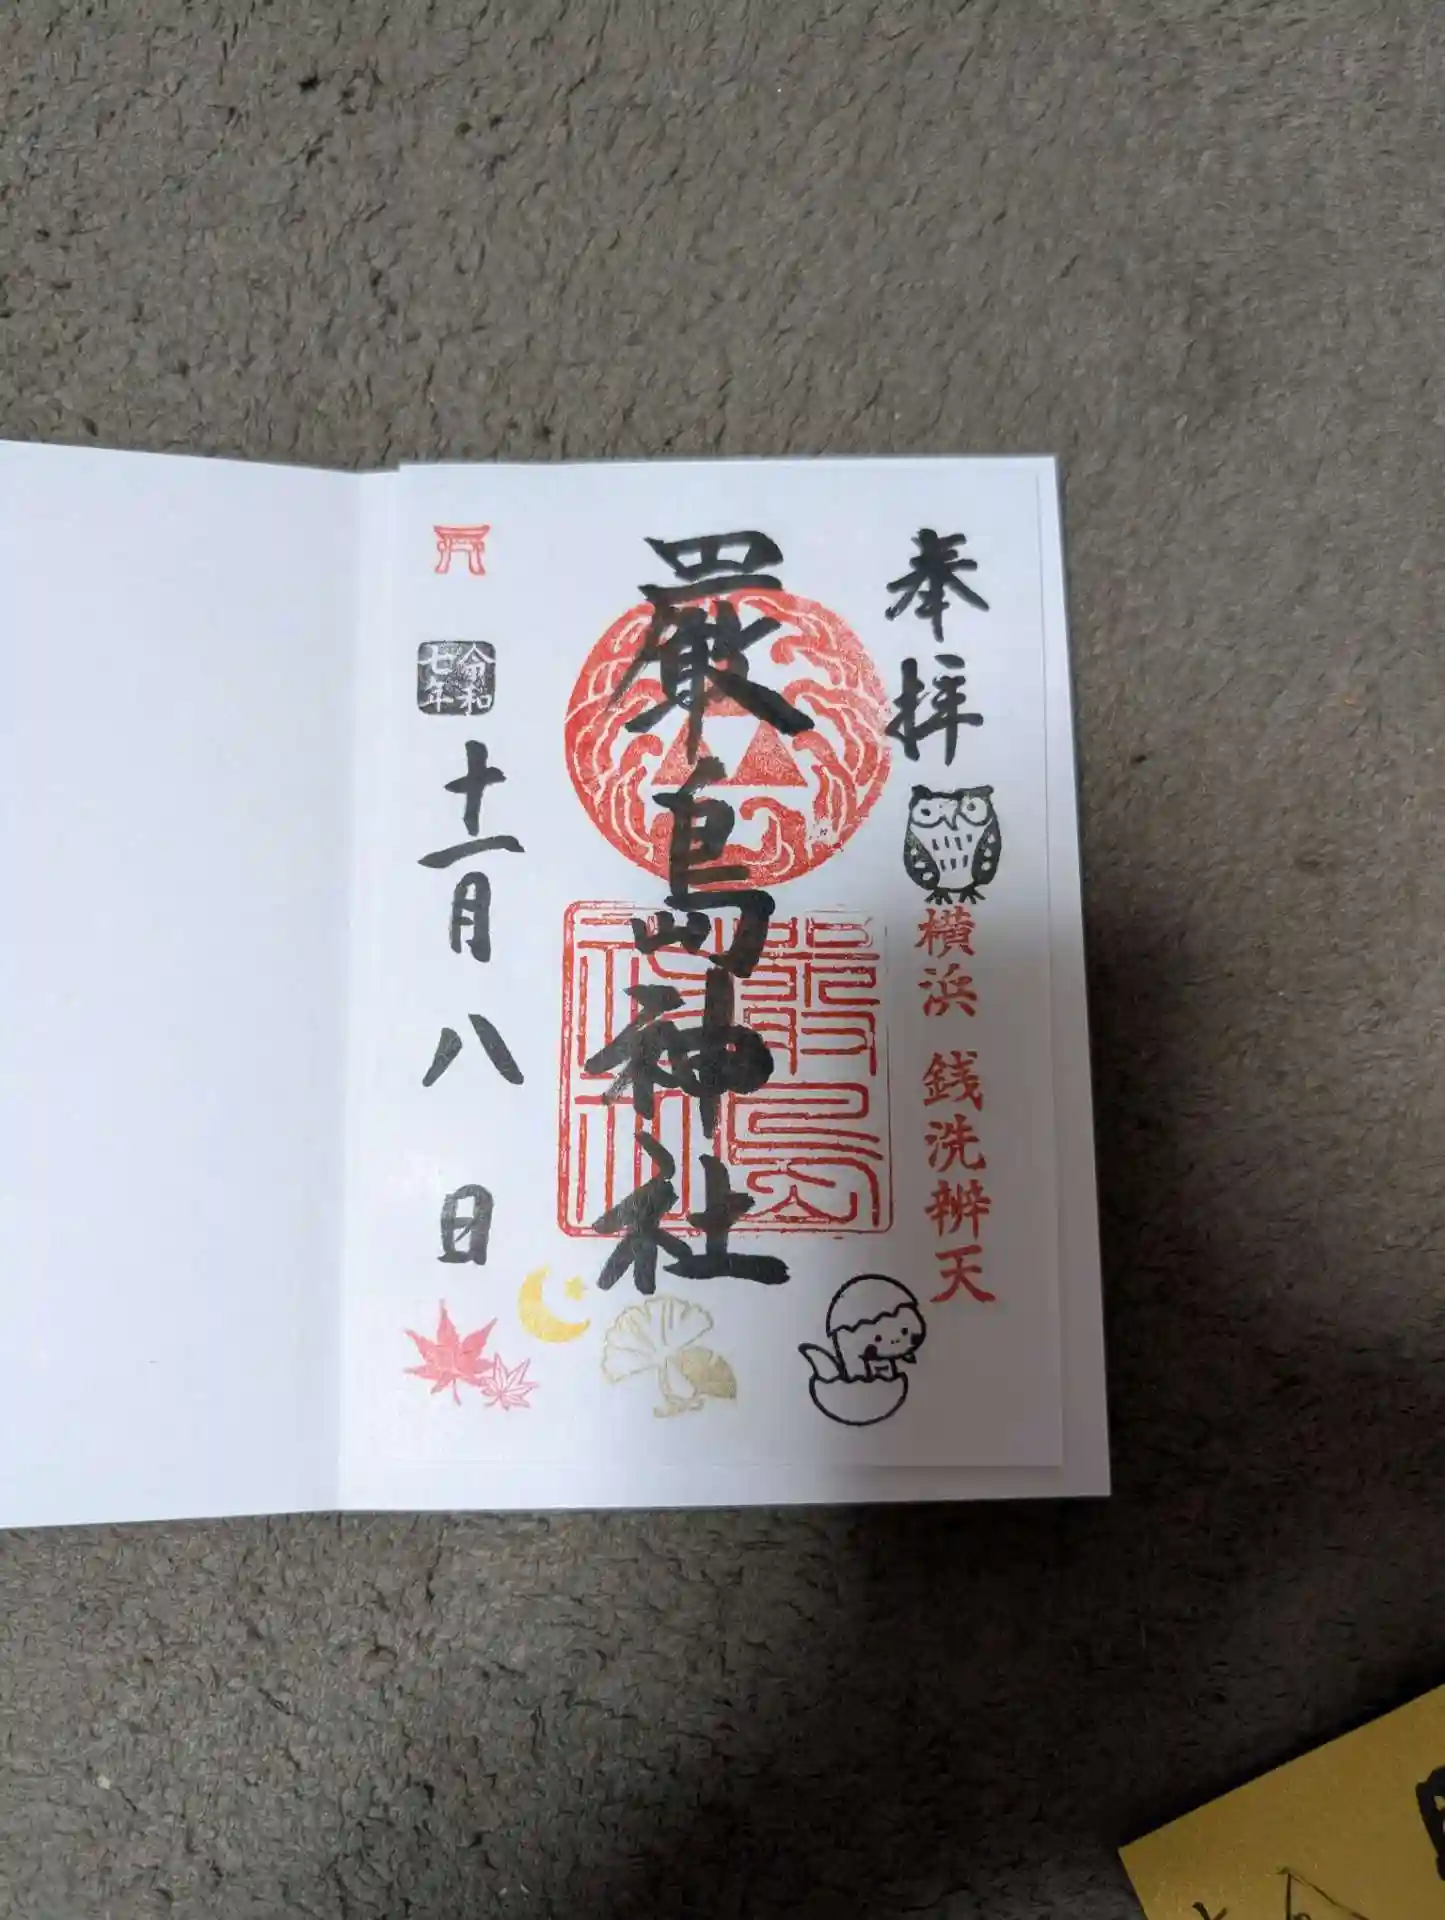 奉拝
横浜 銭洗辨天
厳島神社
厳島
神社
令和
七年
十一月八日